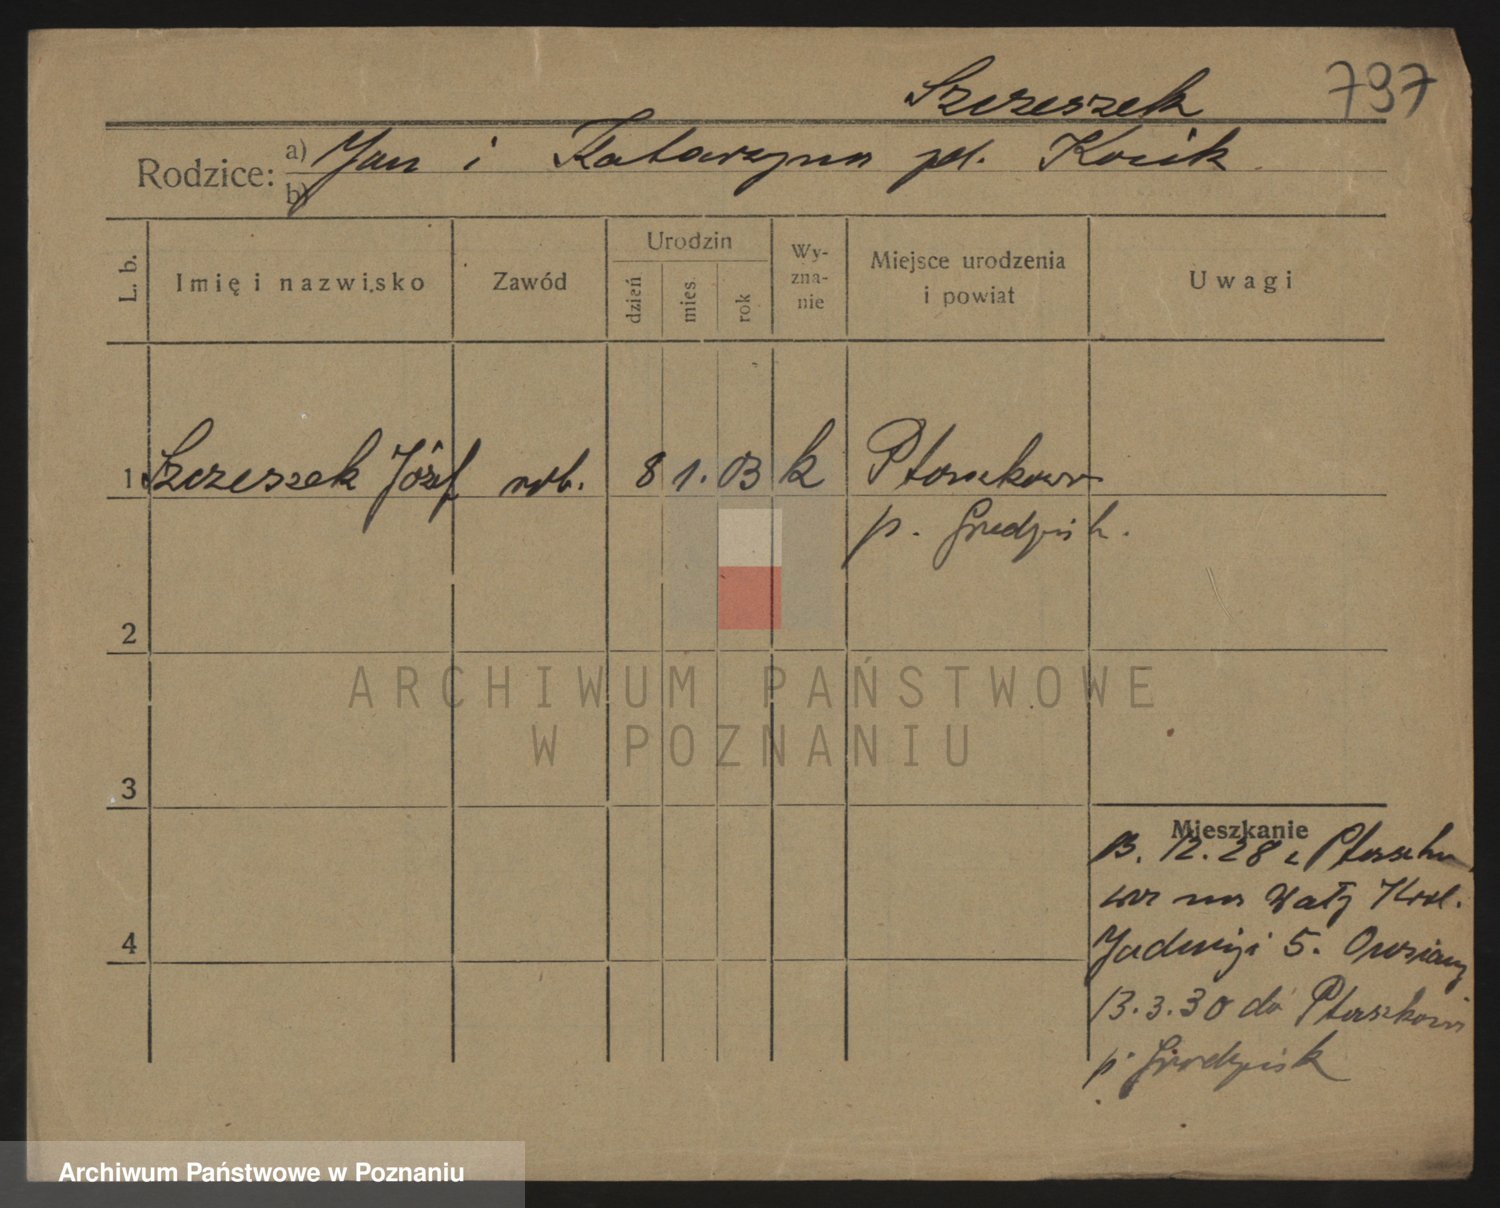 Szczeszek 797
Rodzice: a) Jan i Katarzyna pd. Kocik
b)
L. b. Imię i nazwisko Zawód Urodzin dzień mies. rok Wy-zna-nie Miejsce urodzenia i powiat Uwagi
1 Szczeszek Józef rob. 8 1. 03 k Ptaszkowo
p. Grodzisk.
2
ARCHIWUM PAŃSTWOWE
W POZNANIU
3
Mieszkanie
13. 12. 28 z Ptaszko
wa na Wały Król.
4
Jadwigi 5. Owsiany
13.3.30 do Ptaszkowa
p. Grodzisk
Archiwum Państwowe w Poznaniu